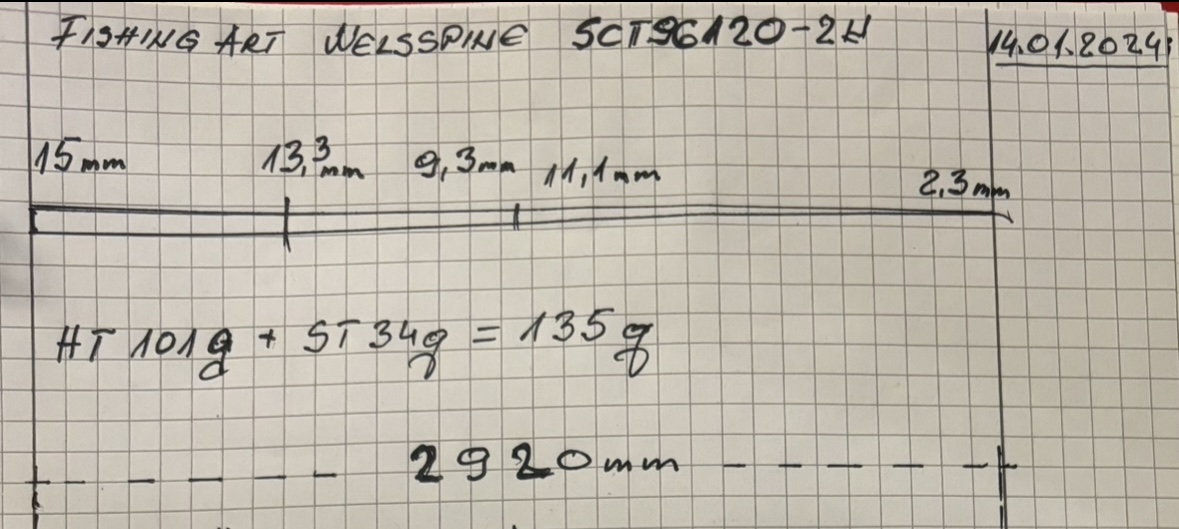 FISHING ART WELSSPINE SCTS96120-2H 14.01.2024
15mm 13,3mm 9,3mm 11,1mm 2,3mm
HT 101g + ST 34g = 135g
2920mm